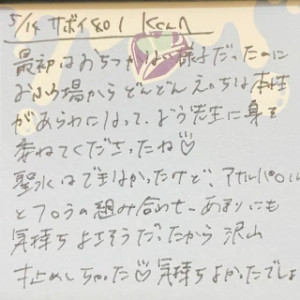 5/14 サボイ801
最初はおちつかない様子だったのに
お風呂場からどんどんえっちな本性
があらわになって、よう先生に身を
委ねてくださったね♡
聖水はでなかったけど、アナルパール
とフェラの組み合わせ、あまりにも
気持ちよさそうだったから沢山
寸止めしちゃった♡気持ちよかったでしょ